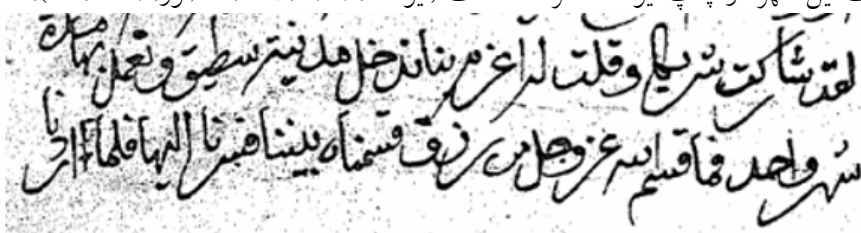 لقد شاركت شريكا وقلت له اعزم بنا ندخل مدينة سطيق ونعمل بها مدة
شهر واحد فما قسم الله عز وجل من رزق قسمناه بيننا فسرنا اليها فلما اردنا